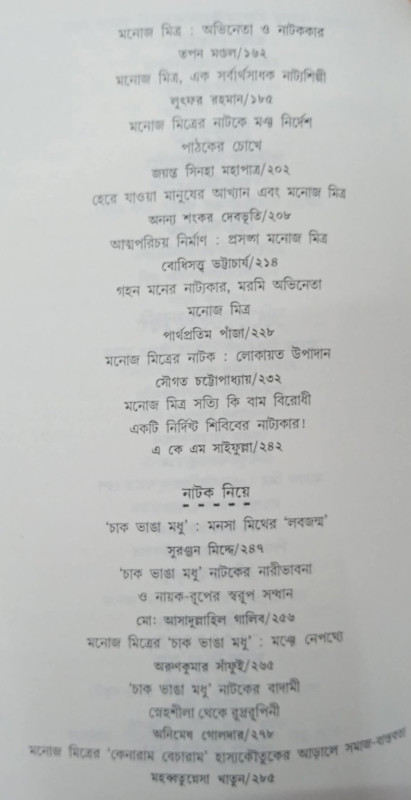 মনোজ মিত্র : অভিনেতা ও নাটককার
তপন মণ্ডল/১৬২
মনোজ মিত্র, এক সর্বার্থসাধক নাট্যশিল্পী
লুৎফর রহমান/১৮৫
মনোজ মিত্রের নাটকে মঞ্চ নির্দেশ
পাঠকের চোখে
জয়ন্ত সিনহা মহাপাত্র/২০২
হেরে যাওয়া মানুষের আখ্যান এবং মনোজ মিত্র
অনন্য শংকর দেবভূতি/২০৮
আত্মপরিচয় নির্মাণ : প্রসঙ্গ মনোজ মিত্র
বোধিসত্ত্ব ভট্টাচার্য/২১৪
গহন মনের নাট্যকার, মরমি অভিনেতা
মনোজ মিত্র
পার্থপ্রতিম পাঁজা/২২৮
মনোজ মিত্রের নাটক : লোকায়ত উপাদান
সৌগত চট্টোপাধ্যায়/২৩২
মনোজ মিত্র সত্যি কি বাম বিরোধী
একটি নির্দিষ্ট শিবিরের নাট্যকার!
এ কে এম সাইফুল্লা/২৪২
নাটক নিয়ে
'চাক ভাঙা মধু' : মনসা মিথের 'লবজন্ম'
সুরঞ্জন মিদ্দে/২৪৭
'চাক ভাঙা মধু' নাটকের নারীভাবনা
ও নায়ক-রূপের স্বরূপ সন্ধান
মো: আসাদুল্লাহিল গালিব/২৫৬
মনোজ মিত্রের 'চাক ভাঙা মধু' : মঞ্চে নেপথ্যে
অরুণকুমার সাঁফুই/২৬৫
'চাক ভাঙা মধু' নাটকের বাদামী
স্নেহশীলা থেকে রুদ্ররূপিনী
অনিমেষ গোলদার/২৭৮
মনোজ মিত্রের 'কেনারাম বেচারাম' হাস্যকৌতুকের আড়ালে সমাজ-বাস্তবতা
মহব্বতুন্নেসা খাতুন/২৮৫